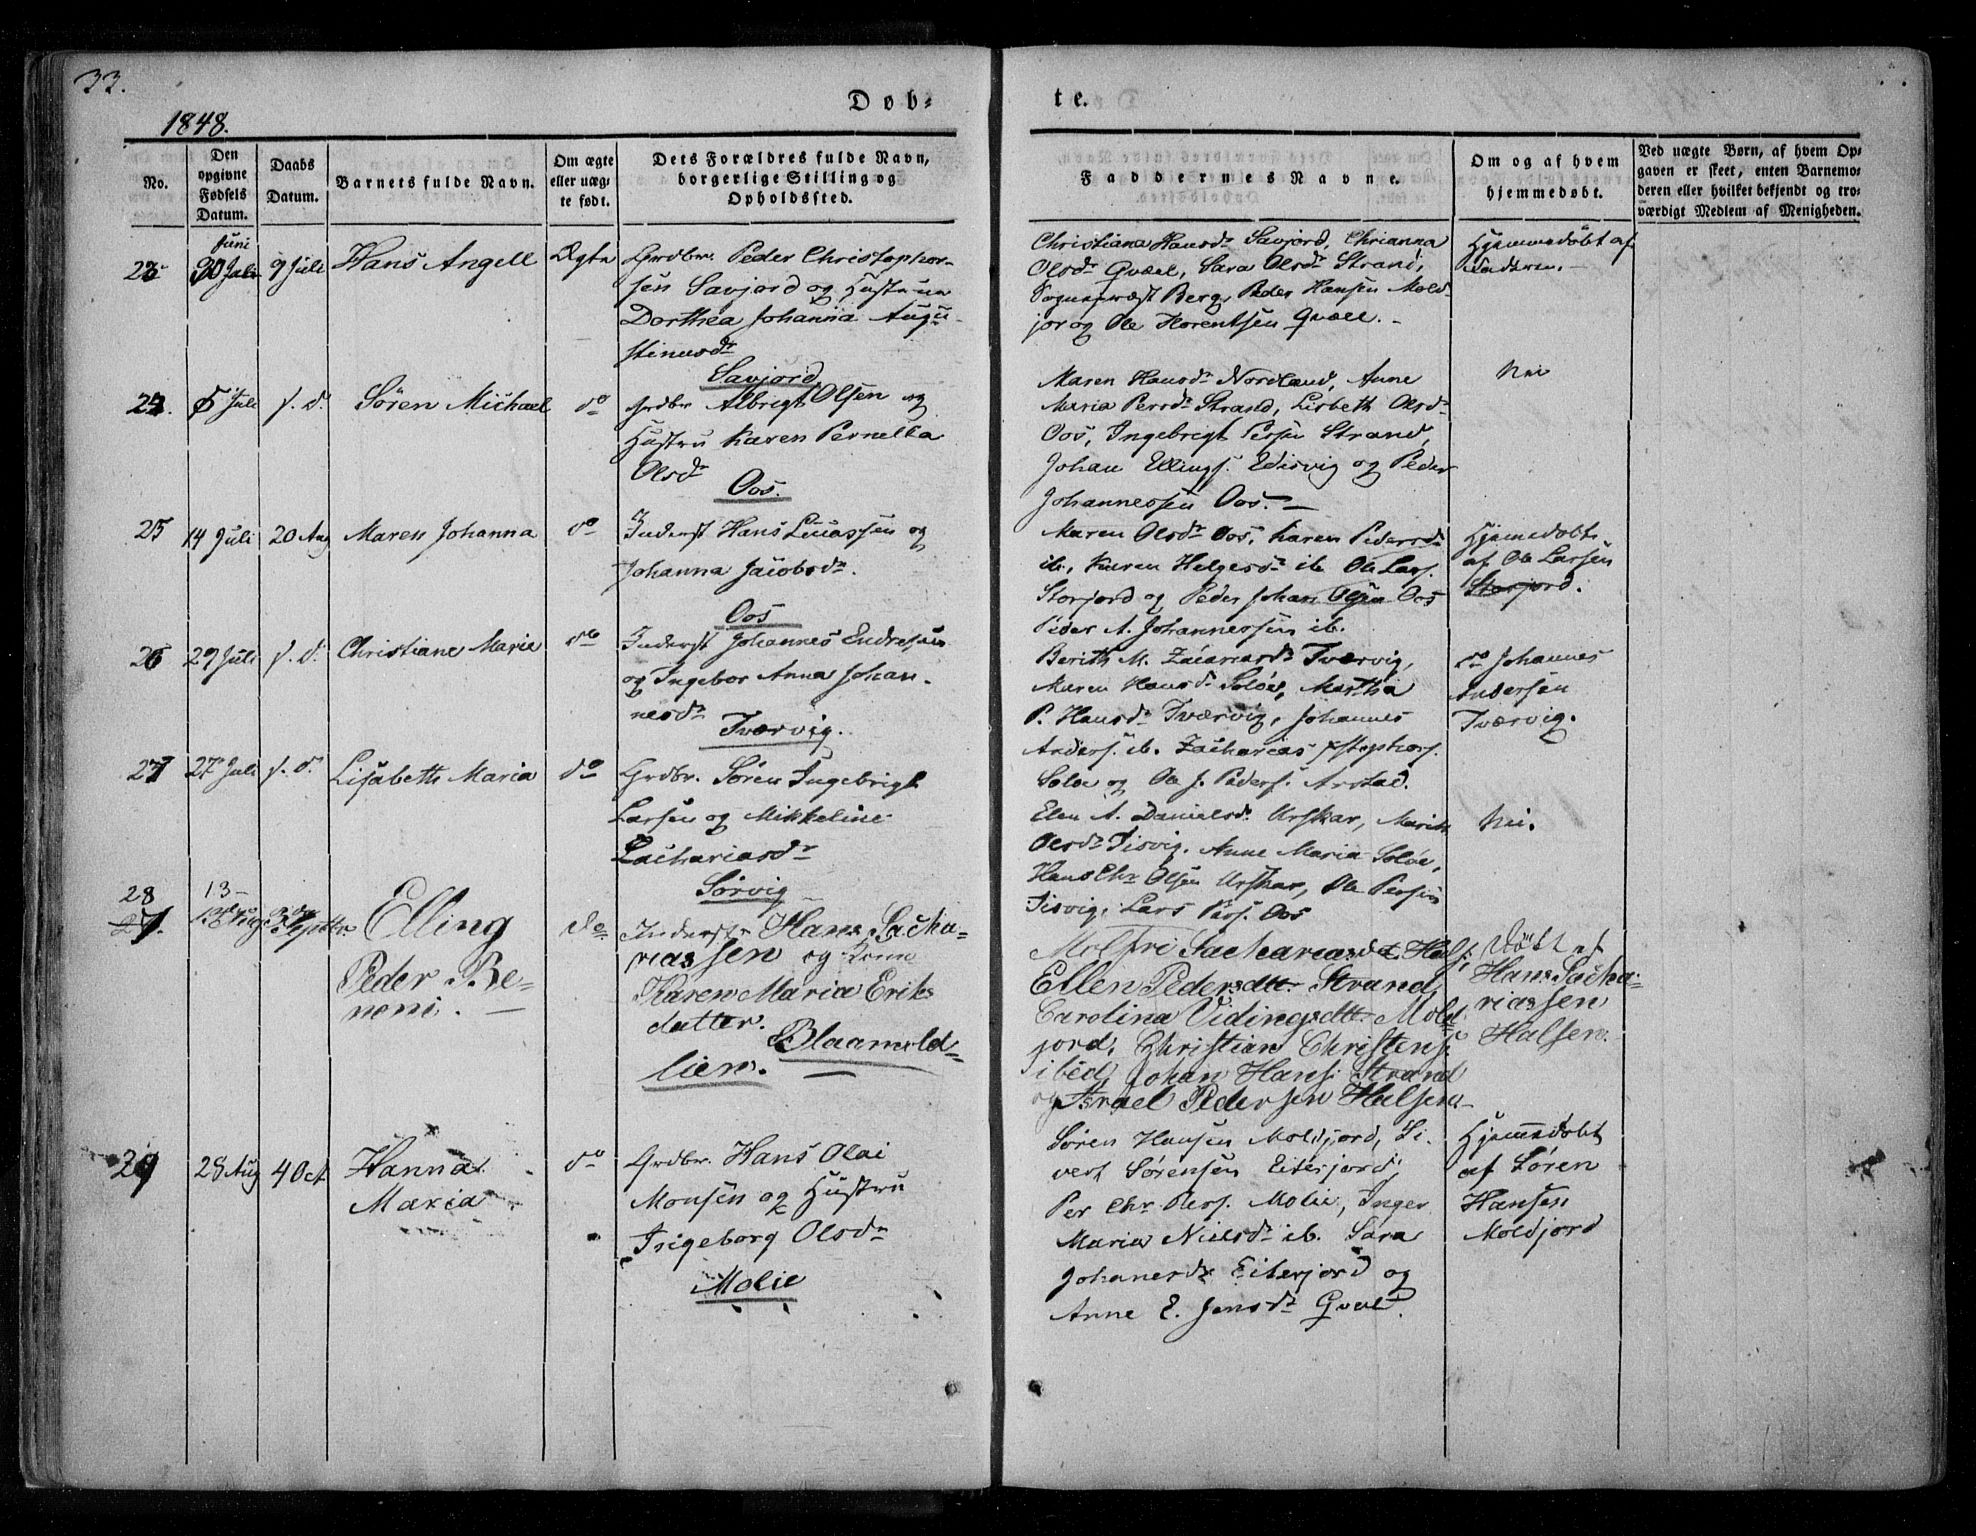 33.
Døb-
te.
1848.
No.
Den opgivne Fødsels Datum.
Daabs Datum.
Barnets fulde Navn.
Om ægte eller uægte født.
Dets Forældres fulde Navn, borgerlige Stilling og Opholdssted.
Faddernes Navne.
Om og af hvem hjemmedøbt.
Ved uægte Børn, af hvem Opgaven er skeet, enten Barnemoderen eller hvilket bekjendt og troværdigt Medlem af Menigheden.
23
Juni
30 Juli
9 Juli
Hans Angell
Ægte
Grdbr. Peder Christophor-
sen Savjord og Hustrue
Dorthea Johanna Augu-
stinusdr
Savjord
Christiana Hansdr Savjord, Chrianna
Olsdr Qvæel, Sara Olsdr Strand,
Sognepræst Berg, Peder Hansen Mold-
jor og Ole Horentsen Qvæel. -
Hjemmedøbt af
Faderen. -
24.
5 Juli
s. d.
Søren Michael
do
Grdbr Albrigt Olsen og
Hustru Karen Pernella
Olsdr
Oos.
Maren Hansdr Nordland, Anne
Maria Persdr Strand, Lisbeth Olsdr
Oos, Ingebrigt Persen Strand,
Johan Ellings. Edisvig og Peder
Johannessen Oos. -
Nei
25
14 Juli
20 Aug
Maren Johanna
do
Inderst Hans Lucassen og
Johanna Jacobsdr.
Oos
Maren Olsdr Oos, Karen Pedersdr
ib, Karen Helgesdr ib Ole Lars.
Storjord og Peder Johan Olsen Oos
Peder A. Johannessen ib.
Hjemmedøbt
af Ole Larsen
Storjord.
26
29 Juli
s. d.
Christiane Maria
do
Inderst Johannes Endresen
og Ingebor Anna Johan-
nesdr
Tværvig.
Berith M. Zacariasdr Tværvig,
Maren Hansdr Soløe, Martha
P. Hansdr Tværvig, Johannes
Anders. ib. Zacharias Xstophors.
Soløe og Ole J. Peders. Arstad.
do Johannes
Andersen
Tværvig.
27
27 Juli
s. d.
Lisabeth Maria
do
Grdbr. Søren Ingebrigt
Larsen og Mikkeline
Zachariasdr
Sørvig
Elen A. Danielsdr. Urskar, Marith
Olsdr Tisvig. Anne Maria Soløe,
Hans Chr Olsen Urskar, Ole Persen
Tisvig, Lars Pers. Oos
Nei.
28
27.
13-
13de Aug
3die Septbr.
Elling
Peder Be-
noni. -
do
Inderst Hans Sacha-
riassen og Kone
Karen Maria Eriks
datter.
Blaamold-
lien.
Molfri Sachariasdtt. Hals:
Ellen Pedersdtt. Strand,
Carolina Vidingsdtt. Mold
jord, Christian Christens.
ibed, Johan Hans. Strand
og Israel Pedersen Halsen.
Døbt af
Hans Sacha-
riassen
Halsen.
29
28 Aug
4 Oct
Hanna
Maria
do
Grdbr. Hans Olai
Monsen og Hustru
Ingeborg Olsdr
Molie
Søren Hansen Moldjord, Si-
vert Sørensen Eiterjord,
Per Chr Pers. Molie, Inger
Maria Nielsdr ib. Sara
Johanesdr Eiterjord og
Anne E. Jensdr Qvæl.
Hjemmedøbt
af Søren
Hansen
Moldjord